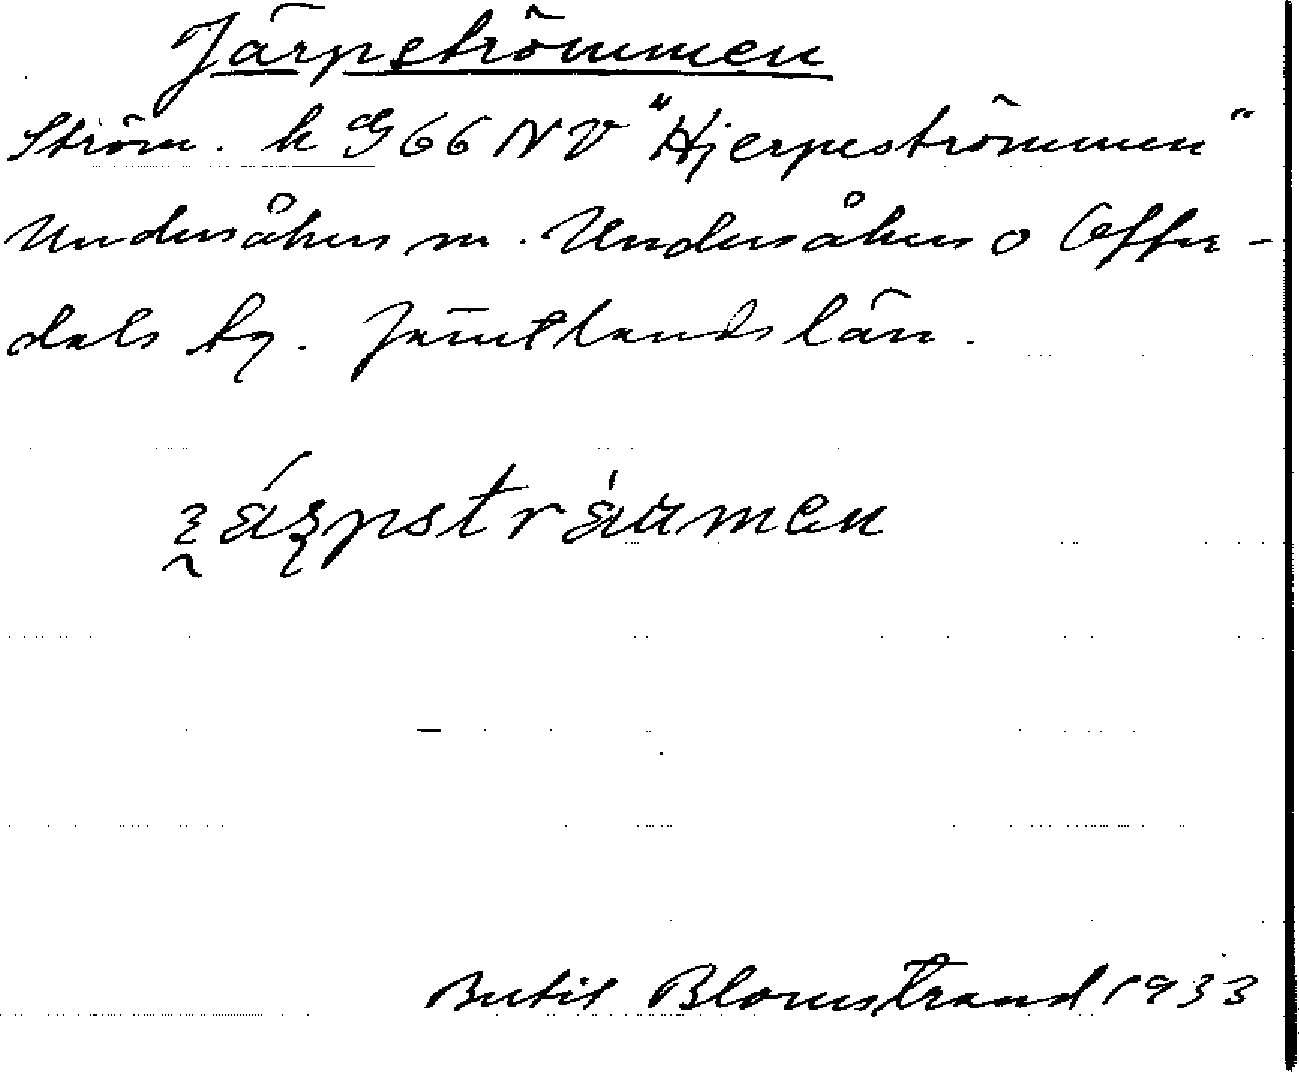 Järpströmmen
Ström. k G 66 NV "Hjerpeströmmen"
Undersåkers sn. Undersåkers o Offer-
dals tg. Jämtlands län.
Bertil Blomstrand 1933